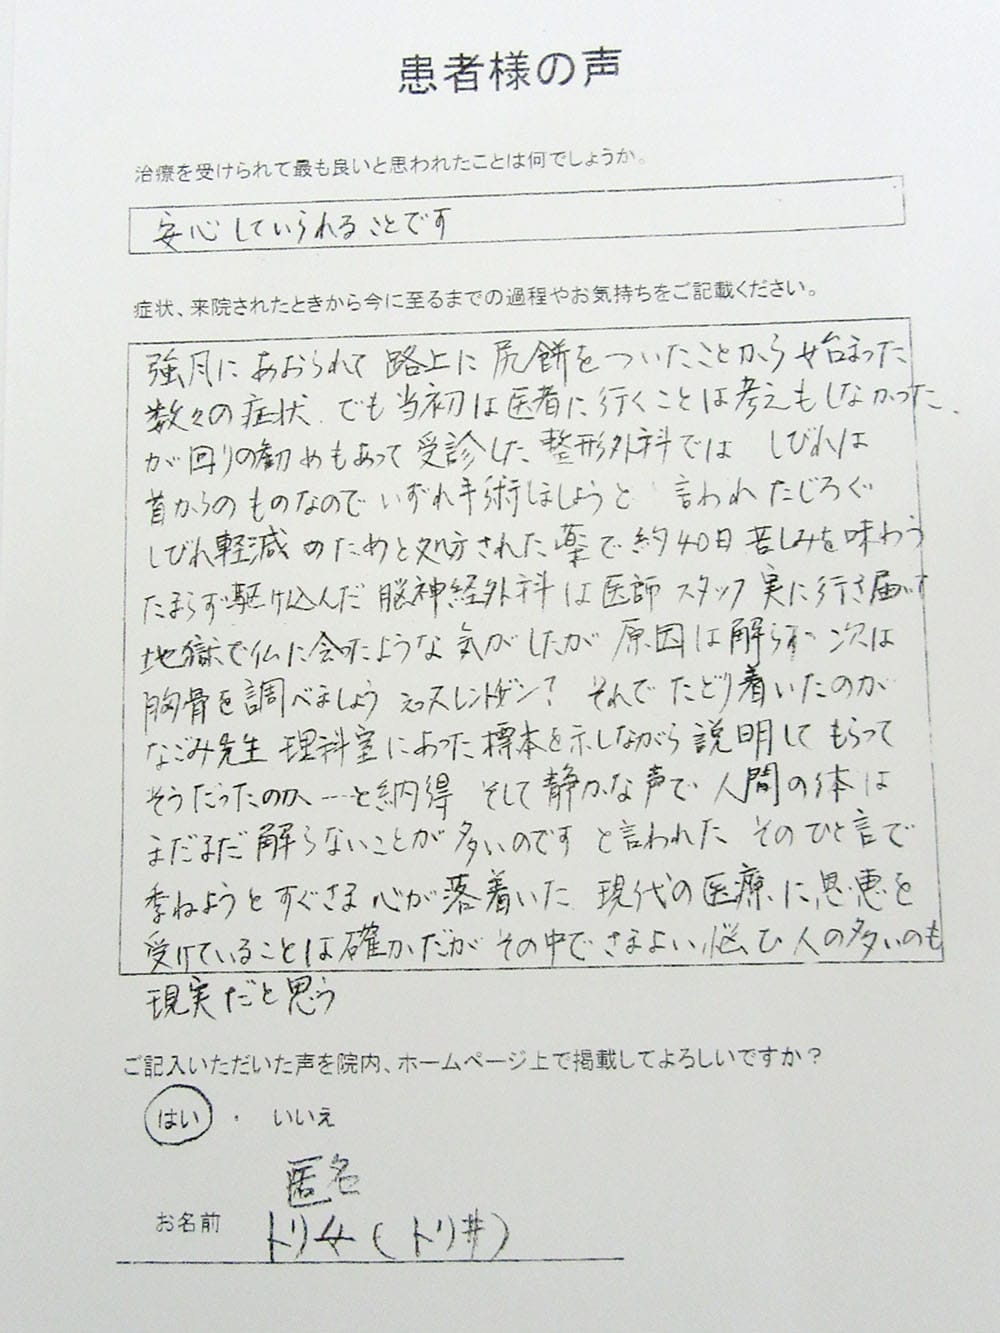 患者様の声
治療を受けられて最も良いと思われたことは何でしょうか。
安心していられることです
症状、来院されたときから今に至るまでの過程やお気持ちをご記載ください。
強月にあおられて 路上に 尻餅をついたことから始まった
数々の症状、でも当初は医者に行くことは考えもしなかった、
が回りの勧めもあって受診した、整形外科では しびれは
首からのものなので いずれ手術しましょうと 言われ たじろぐ
しびれ軽減のためと処方された薬で約40日苦しみを味わう
たまらず駆け込んだ 脳神経外科は医師 スタッフ 実に行き届き
地獄で仏に会ったような気がしたが 原因は解らず 次は
胸骨を調べましょう えっスレントゲン? それでたどり着いたのが
なごみ先生 理科室にあった標本を示しながら説明してもらって
そうだったのか…と納得 そして静かな声で 人間の体は
まだまだ解らないことが多いのです と言われた そのひと言で
委ねようとすぐさま心が落着いた 現代の医療に恩恵を
受けていることは確かだが その中でさまよい悩む人の多いのも
現実だと思う
ご記入いただいた声を院内、ホームページ上で掲載してよろしいですか？
はい ・ いいえ
匿名
お名前 トリ女(トリ井)